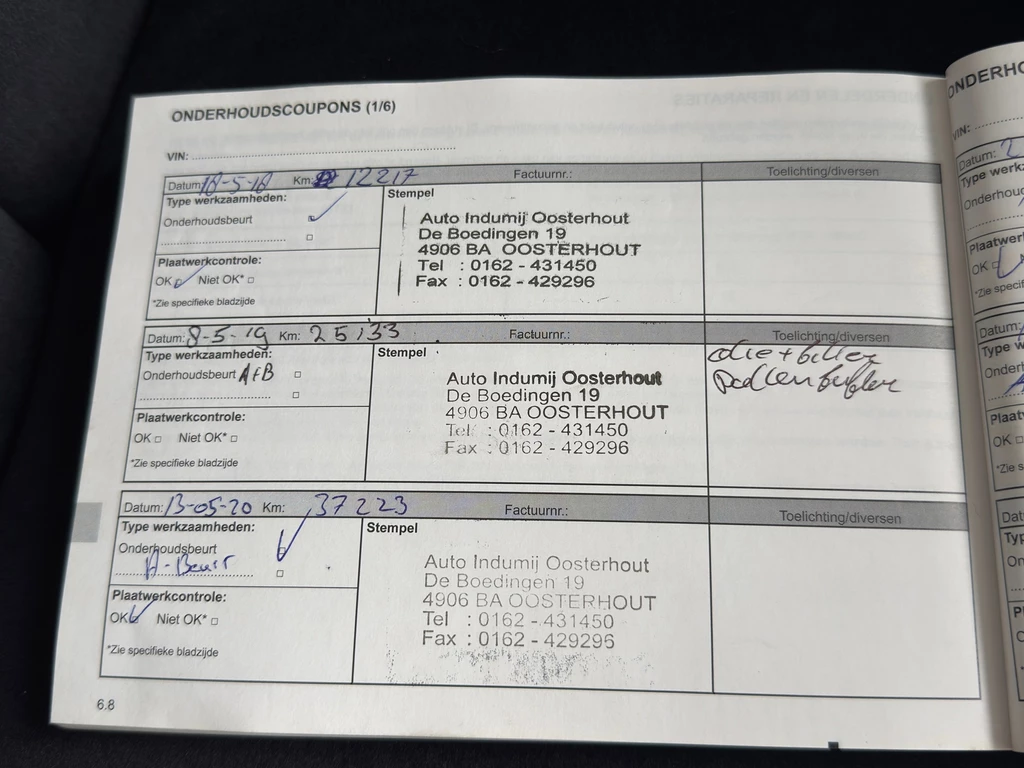 ONDERHOUDSCOUPONS (1/6)
VIN:
Datum: 18-5-18 Km: 12217 Factuurnr.: Toelichting/diversen
Type werkzaamheden: Stempel
Onderhoudsbeurt
Auto Indumij Oosterhout
De Boedingen 19
4906 BA OOSTERHOUT
Tel : 0162 - 431450
Fax : 0162 - 429296
Plaatwerkcontrole:
OK Niet OK*
*Zie specifieke bladzijde
Datum: 8-5-19 Km: 25133 Factuurnr.: Toelichting/diversen
Type werkzaamheden: Stempel
Onderhoudsbeurt A+B
Auto Indumij Oosterhout
De Boedingen 19
4906 BA OOSTERHOUT
Tel : 0162 - 431450
Fax : 0162 - 429296
olie + filter
Plaatwerkcontrole:
OK Niet OK*
*Zie specifieke bladzijde
Datum: 13-05-20 Km: 37223 Factuurnr.: Toelichting/diversen
Type werkzaamheden: Stempel
Onderhoudsbeurt
A-Beurt
Auto Indumij Oosterhout
De Boedingen 19
4906 BA OOSTERHOUT
Tel : 0162 - 431450
Fax : 0162 - 429296
Plaatwerkcontrole:
OK Niet OK*
*Zie specifieke bladzijde
6.8
VIN:
Datum: 2
OK
Datum:
OK